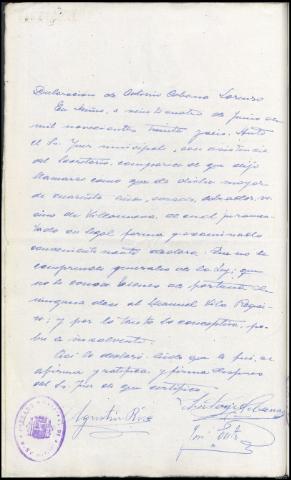 Declaracion de Antonio Cobana Lorenzo
En Miño, a veinticuatro de Junio de
mil novecientos treinta y seis. Ante
el Sr Juez municipal, con asistencia
del Secretario, comparece el que dijo
llamarse como queda dicho mayor
de cuarenta años, casado, labrador, ve
cino de Villanueva, el cual juramen-
tado en legal forma y examinado
convenientemente declara: Que no le
comprenden generales de la Ley; que
no le conoce bienes de pertenencia de
ninguna clase al Manuel Vila
y por lo tanto lo conceptua, po-
bre e insolvente.
Asi lo declaró, leida que le fué, se
afirma y ratifica, y firma despues
del Sr Juez de que certifico.
Agustin